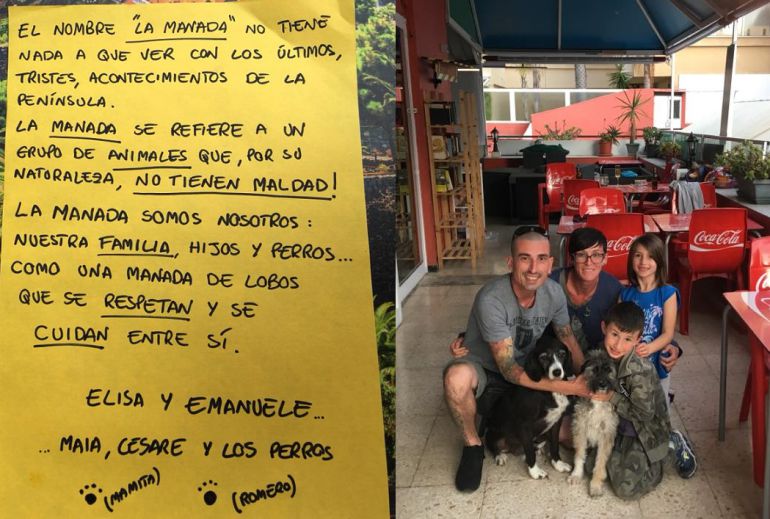 EL NOMBRE "LA MANADA" NO TIENE
NADA A QUE VER CON LOS ÚLTIMOS,
TRISTES, ACONTECIMIENTOS DE LA
PENÍNSULA.
LA MANADA SE REFIERE A UN
GRUPO DE ANIMALES QUE, POR SU
NATURALEZA, NO TIENEN MALDAD!
LA MANADA SOMOS NOSOTROS:
NUESTRA FAMILIA, HIJOS Y PERROS...
COMO UNA MANADA DE LOBOS
QUE SE RESPETAN Y SE
CUIDAN ENTRE SÍ.
ELISA Y EMANUELE...
...MAIA, CESARE Y LOS PERROS
(MAMITA) (ROMERO)
Coca-Cola
Coca-Cola